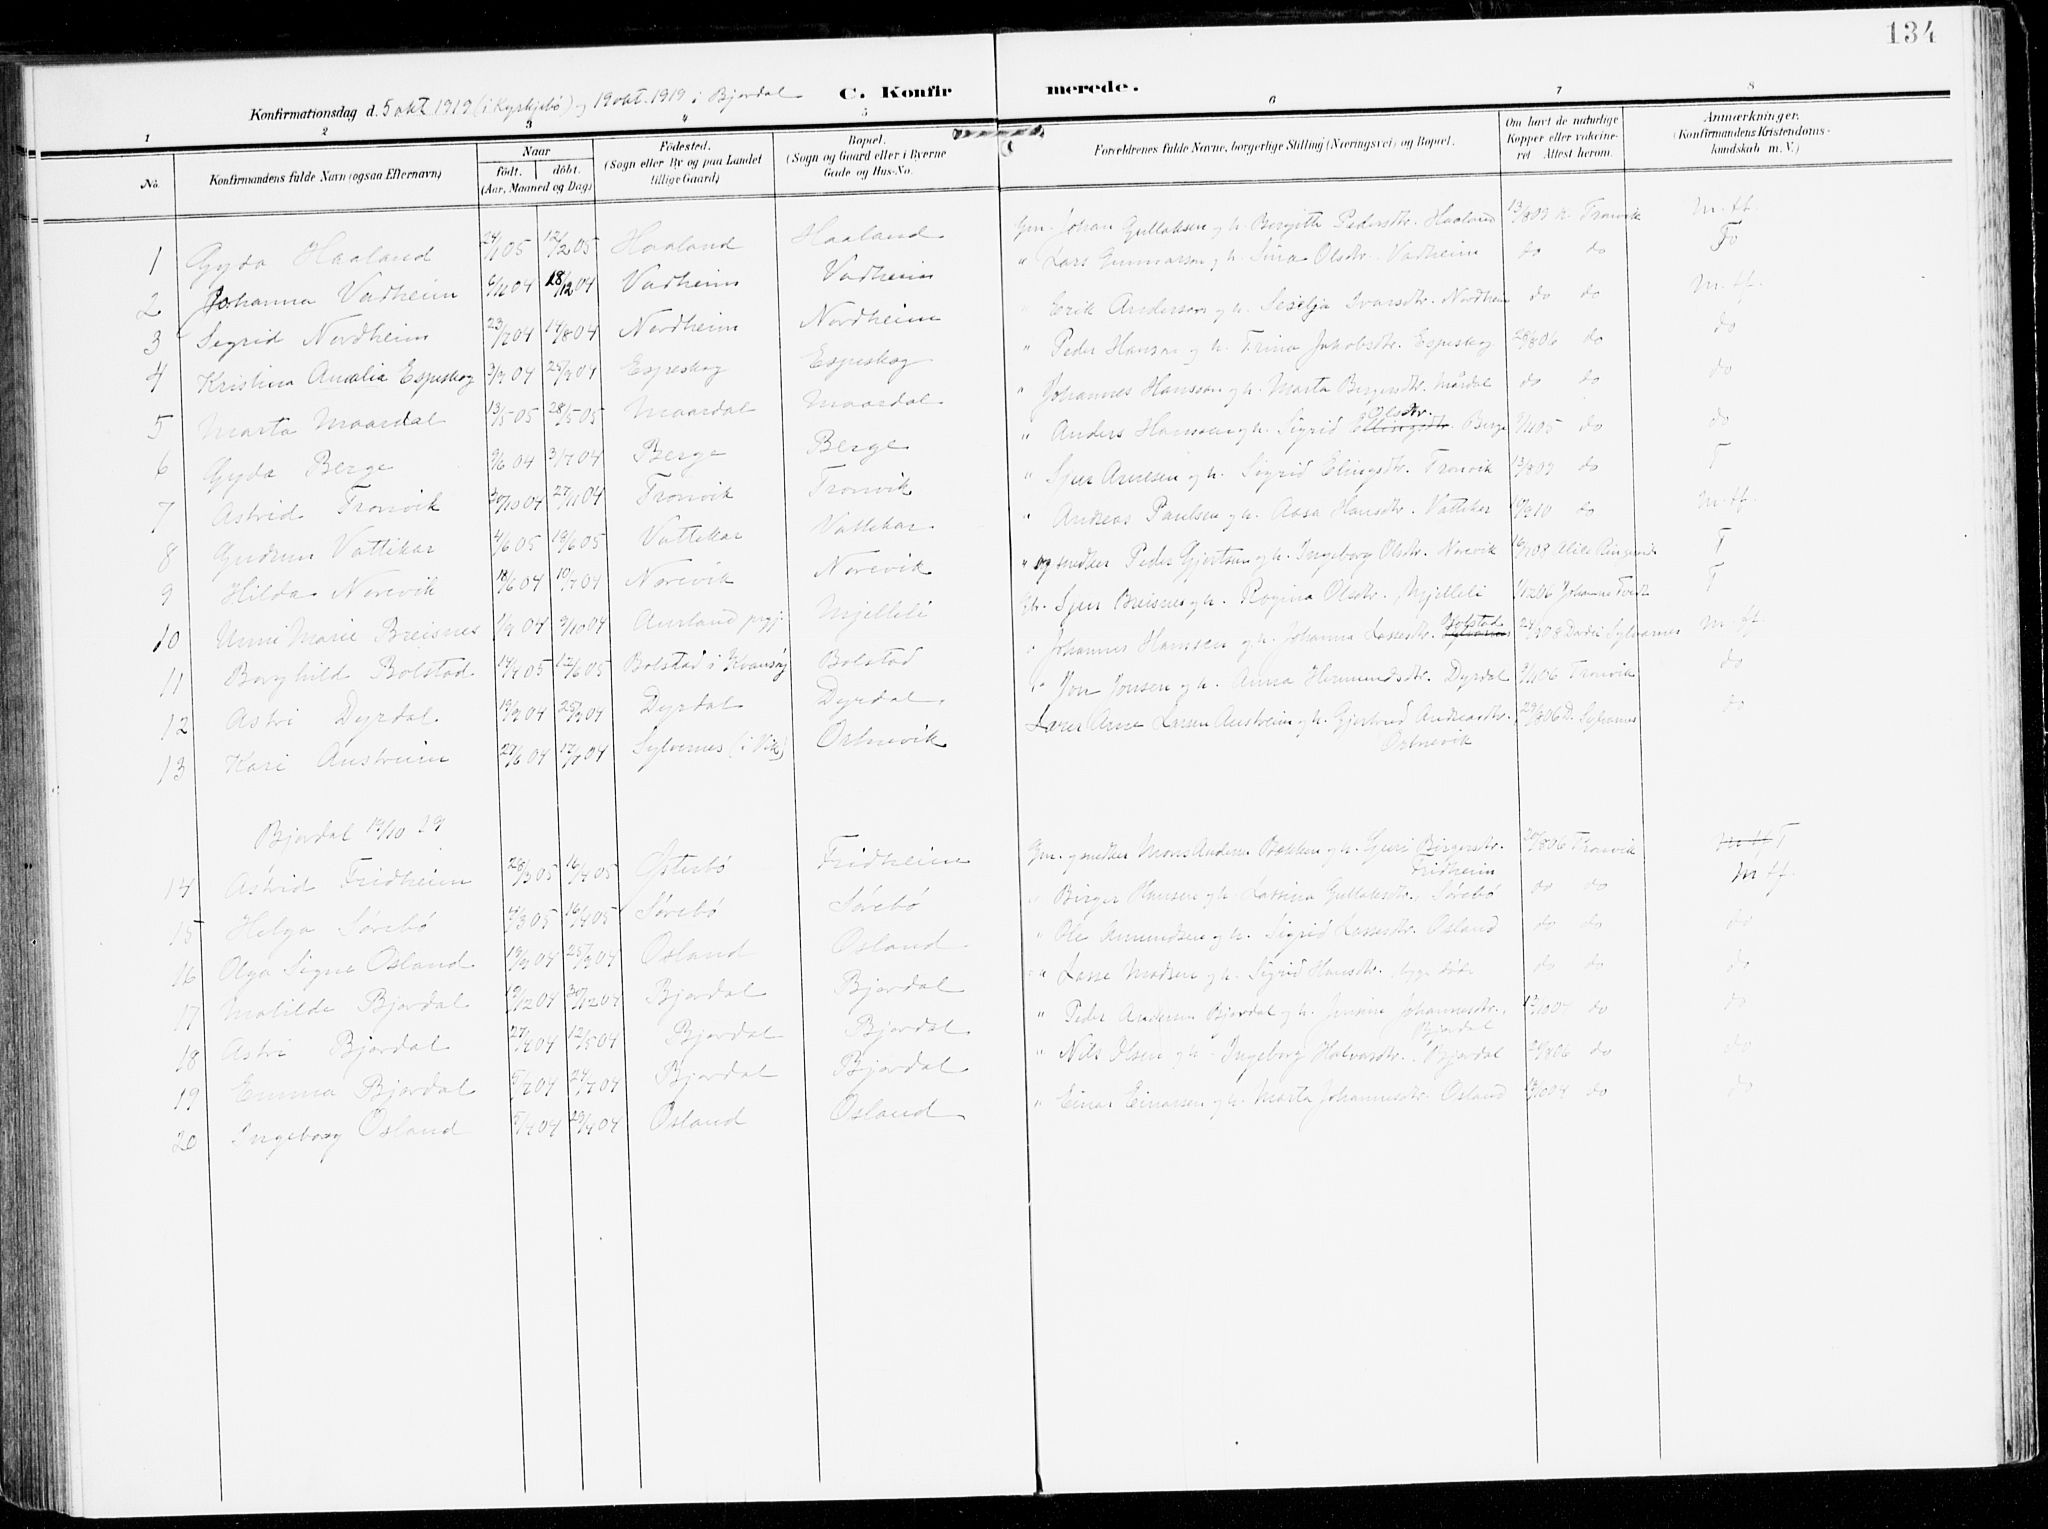 134
Konfirmationsdag d. 5 okt 1919 (i Kyrkjebö) og 19 okt. 1919 i Bjordal C. Konfirmerede.
1 2 3 4 5 6 7 8
No. Konfirmandens fulde Navn (ogsaa Efternavn) Naar födt. döbt. (Aar, Maaned og Dag) Födested. (Sogn eller By og paa Landet tillige Gaard) Bopæl. (Sogn og Gaard eller i Byerne Gade og Hus-No. Forældrenes fulde Navne, borgerlige Stilling (Næringsvei) og Bopæl. Om havt de naturlige Kopper eller vakcineret. Attest herom. Anmærkninger. (Konfirmandens Kristendomskundskab m. V.)
1 Gyda Haaland 24/1 05 12/2 05 Haaland Haaland Gm. Johan Gullaksen og h. Bergitte Pedersdtr. Haaland 13/8 09 K. Tronvik M. tf.
2 Johanna Vadheim 6/11 04 18/12 04 Vadheim Vadheim " Lars Gunnarson og h. Sina Olsdtr. Vadheim do do
3 Sigrid Nordheim 23/7 04 14/8 04 Nordheim Nordheim " Erik Anderson og h. Seselja Ivarsdtr. Nordheim do do M. tf.
4 Kristina Amalia Espeskog 3/9 04 25/9 04 Espeskog Espeskog " Peder Hanson og h. Trina Jakobsdtr. Espeskog 28/8 06 do do
5 Marta Maardal 13/5 05 28/5 05 Maardal Maardal " Johannes Hansson og h. Marta Bergersdtr. Mårdal do do do
6 Gyda Berge 9/6 04 3/7 04 Berge Berge " Anders Hanssen og h. Sigrid Olsdtr. Berge 05 do do
7 Astrid Tronvik 30/10 04 27/11 04 Tronvik Tronvik " Sjur Arnesen og h. Sigrid Elingsdtr. Tronvik 13/8 09 do T
8 Gudrun Vattekar 4/6 05 18/6 05 Vattekar Vattekar " Andreas Paulsen og h. Aasa Hansdtr. Vattekar 10 do M. tf.
9 Hilda Norevik 18/6 04 10/7 04 Norevik Norevik " og snedker Peder Gjertsen og h. Ingeborg Olsdtr. Norevik 08 T
10 Unni Marie Breisnes 1/9 04 9/10 04 Aurland prgj. Mjelleli Sjur Breisnes og h. Ragina Olsdtr., Mjelleli 1/12 06 Johannes T
11 Borghild Bolstad 14/4 05 12/6 05 Bolstad i Kvamsøy Bolstad " Johannes Hanssen og h. Johanna Lassesdtr. Bolstad 08 Sylvarnes M. tf.
12 Astri Dyrdal 19/9 04 25/9 04 Dyrdal Dyrdal " Jon Jonsen og h. Anna Hermundsdtr. Dyrdal 06 Tronvik do
13 Kari Austreim 27/6 04 17/7 04 Sylvernes (i Vik) Ortnevik Lærer Arne Larsen Austreim og h. Gjertrud Andreasdtr. Ortnevik 06 D. Sylvarnes do
Bjordal 19/10 29
14 Astrid Fridheim 28/3 05 16/4 05 Østerbö Fridheim Gm. og snedker Mons Anders Bakken og h. Guri Birgersdtr. Fridheim 20/8 06 Tronvik M tf T
15 Helga Sørebö 4/3 05 16/4 05 Sørebö Sørebö " Birger Hansen og h. Lassina Gullaksdtr., Sørebö do do M tf.
16 Olga Signe Osland 13/9 04 25/9 04 Osland Osland " Ole Amundsen og h. Sigrid Lassesdtr. Osland do do do
17 Matilde Bjordal 19/12 04 30/12 04 Bjordal Bjordal " Lasse Madsen og h. Sigrid Hansdtr., begge döde do do do
18 Astri Bjordal 27/4 04 12/5 04 Bjordal Bjordal " Peder Andersen Bjordal og h. Jensine Johannesdtr., Bjordal 12/10 04 do do
19 Emma Bjordal 5/7 04 24/7 04 Bjordal Bjordal " Nils Olsen og h. Ingeborg Halvardsdtr. Bjordal 06 do do
20 Ingeborg Osland 5/4 04 29/4 04 Osland Osland " Einar Einarsen og h. Marta Johannesdtr. Osland 04 do do